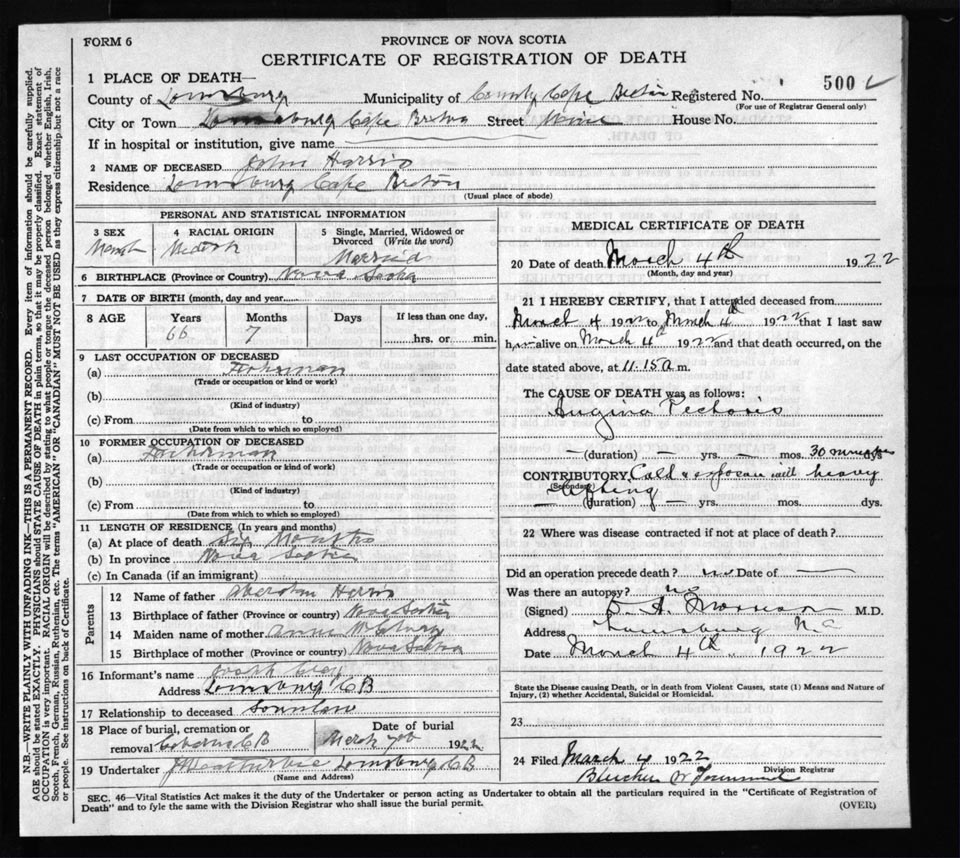 FORM 6
PROVINCE OF NOVA SCOTIA
CERTIFICATE OF REGISTRATION OF DEATH
1 PLACE OF DEATH—
500
County of Louisburg Municipality of County Cape Breton Registered No.
(For use of Registrar General only)
City or Town Louisburg Cape Breton Street House No.
If in hospital or institution, give name
2 NAME OF DECEASED John Harris
Residence Louisburg Cape Breton
(Usual place of abode)
PERSONAL AND STATISTICAL INFORMATION
3 SEX
4 RACIAL ORIGIN
5 Single, Married, Widowed or Divorced (Write the word)
Married
6 BIRTHPLACE (Province or Country) Nova Scotia
7 DATE OF BIRTH (month, day and year)
8 AGE Years Months Days If less than one day,
66 7 hrs. or min.
9 LAST OCCUPATION OF DECEASED
(a) Fisherman
(Trade or occupation or kind or work)
(b)
(Kind of industry)
(c) From to
(Date from which to which so employed)
10 FORMER OCCUPATION OF DECEASED
(a) Fisherman
(Trade or occupation or kind of work)
(b)
(Kind of industry)
(c) From to
(Date from which to which so employed)
11 LENGTH OF RESIDENCE (In years and months)
(a) At place of death Six Months
(b) In province Nova Scotia
(c) In Canada (if an immigrant)
Parents
12 Name of father Harris
13 Birthplace of father (Province or country) Nova Scotia
14 Maiden name of mother Annie
15 Birthplace of mother (Province or country) Nova Scotia
16 Informant's name Joseph
Address Louisburg C B
17 Relationship to deceased
18 Place of burial, cremation or removal C B
Date of burial March 7th 1922
19 Undertaker Louisburg C B
(Name and Address)
MEDICAL CERTIFICATE OF DEATH
20 Date of death March 4th 1922
(Month, day and year)
21 I HEREBY CERTIFY, that I attended deceased from
March 4 1922 to March 4th 1922 that I last saw
h alive on March 4th 1922 and that death occurred, on the
date stated above, at 11.15 a m.
The CAUSE OF DEATH was as follows:
Angina Pectoris
— (duration) — yrs. — mos. 30 minutes
CONTRIBUTORY Cold & heavy
(Secondary) lifting
— (duration) — yrs. mos. dys.
22 Where was disease contracted if not at place of death?
Did an operation precede death? no Date of —
Was there an autopsy? no
(Signed) Morrison M.D.
Address Louisburg
Date March 4th 1922
State the Disease causing Death, or in death from Violent Causes, state (1) Means and Nature of
Injury, (2) whether Accidental, Suicidal or Homicidal.
23
24 Filed March 4 1922
Division Registrar
SEC. 46—Vital Statistics Act makes it the duty of the Undertaker or person acting as Undertaker to obtain all the particulars required in the "Certificate of Registration of
Death" and to fyle the same with the Division Registrar who shall issue the burial permit.
(OVER)
N.B.—WRITE PLAINLY WITH UNFADING INK—THIS IS A PERMANENT RECORD. Every item of information should be carefully supplied.
AGE should be stated EXACTLY. PHYSICIANS should STATE CAUSE OF DEATH in plain terms, so that it may be properly classified. Exact statement of
OCCUPATION is very important. RACIAL ORIGIN will be described by stating to what people or tongue the deceased person belonged whether English, Irish,
Scotch, French, German, Russian, Ruthenian, etc. The terms "AMERICAN" OR "CANADIAN" MUST NOT BE USED as they express citizenship but not a race
or people. See instructions on back of Certificate.